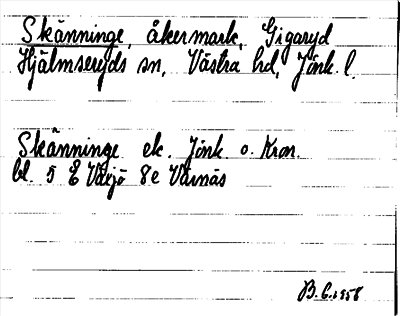 Skänninge, åkermark, Gigaryd
Hjälmseryds sn, Västra hd, Jönk. l.
Skänninge ek. Jönk. o. Kron.
bl. 5 E Växjö 8e Värnäs
B.C. 1958